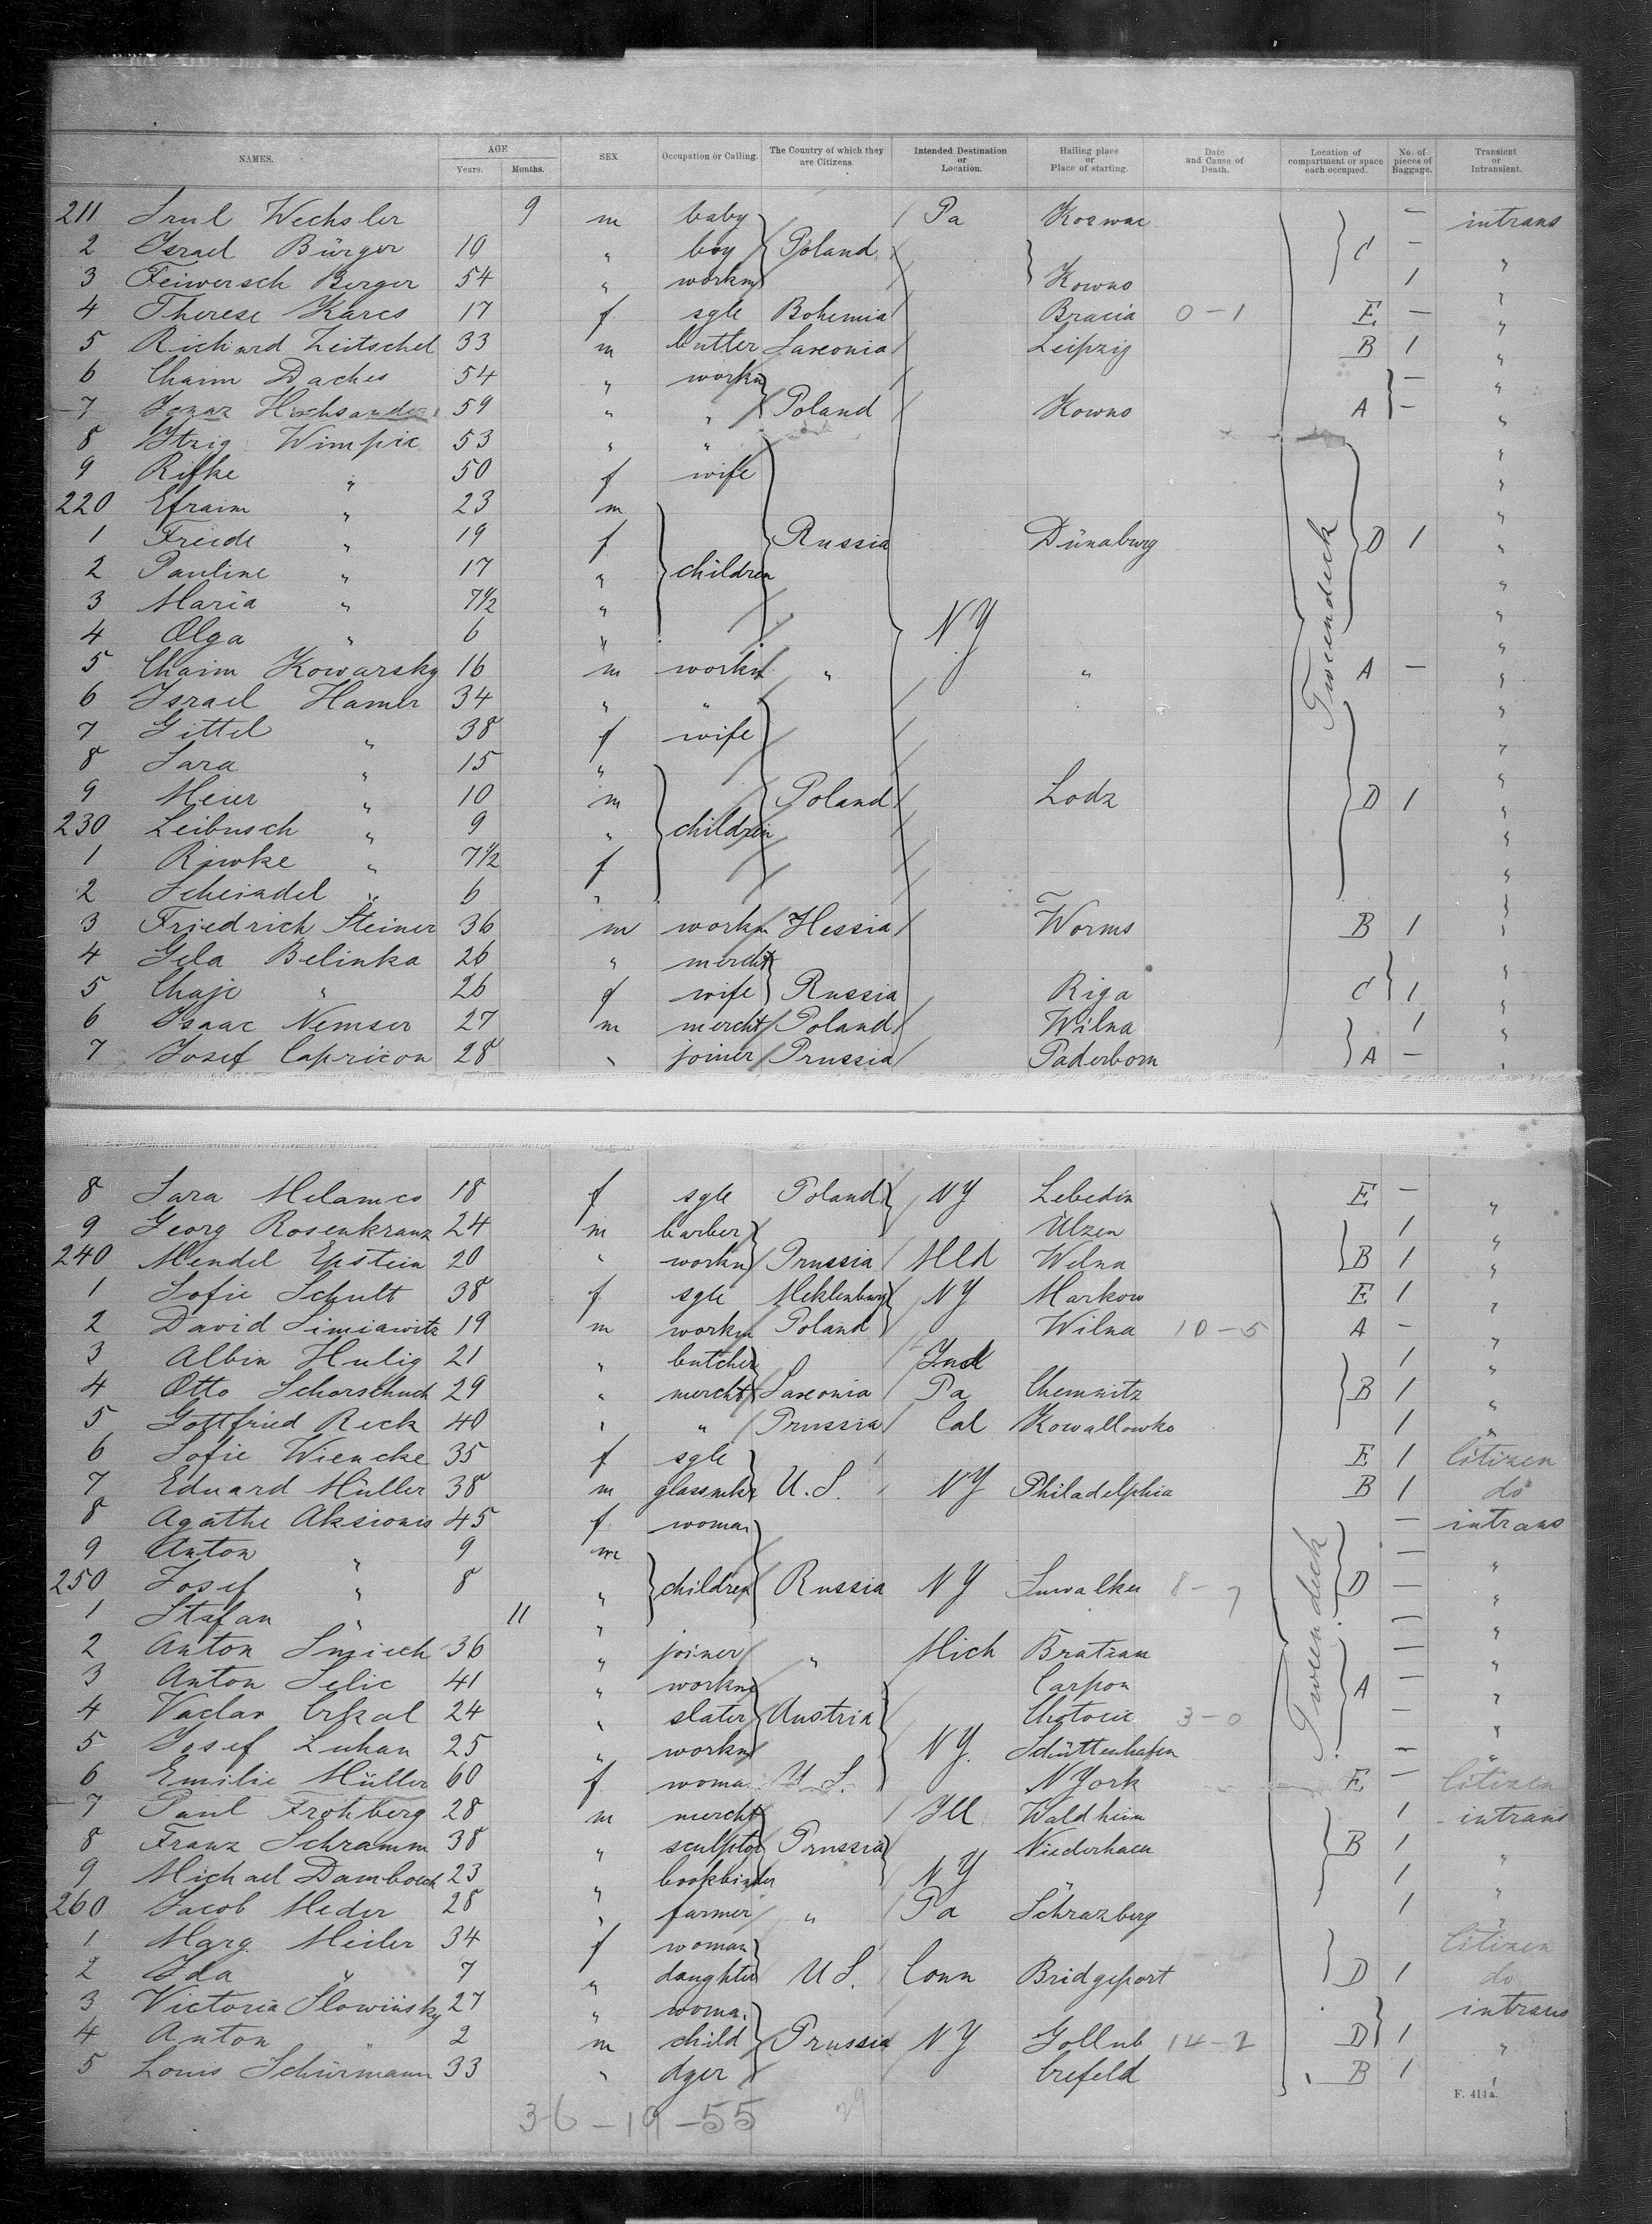 NAMES. AGE Years. Months. SEX Occupation or Calling. The Country of which they are Citizens. Intended Destination or Location. Hailing place or Place of starting. Date and Cause of Death. Location of compartment or space each occupied. No. of pieces of Baggage. Transient or Intransient.
211 Srul Wechsler 9 m baby / Pa — intrans
2 Israel Bürger 10 " boy Poland C — "
3 Feiwersch Berger 54 " workm Kowno 1 "
4 Therese Karcs 17 f sgle Bohemia 0-1 E — "
5 Richard Zeitschel 33 m Leipzig B 1 "
6 Chaim Daches 54 " workm — "
7 59 " " Poland Kowno A — "
8 Itzig Wimpic 53 " " "
9 Rifke " 50 f wife "
220 Efraim " 23 m "
1 Freide " 19 f Russia Dünaburg D 1 "
2 Pauline " 17 " children "
3 Maria " 7½ " "
4 Olga " 6 " NY Tweendeck "
5 Chaim Kowarsky 16 m workm " " A — "
6 Israel Hamlr 34 " " "
7 Gittel " 38 f wife "
8 Sara " 15 " "
9 Meier " 10 m Poland Lodz D 1 "
230 Leibusch " 9 " children "
1 Riwke " 7½ f "
2 Scheindel " 6 " "
3 Friedrich Steiner 36 m workm Hessia Worms B 1 "
4 Gela Belinka 26 " mercht "
5 Chaje " 26 f wife Russia Riga C 1 "
6 Isaac Nemser 27 m mercht Poland Wilna 1 "
7 Josef Capricon 28 " joiner Prussia Paderborn A — "
8 Sara Melamcs 18 f sgle Poland NY Lebedin E — "
9 Georg Rosenkranz 24 m barber Ulzen 1 "
240 Mendel Epstein 20 " workm Prussia Mld Welna B 1 "
1 Sofie Schult 38 f sgle Meklenburg NY Markow E 1 "
2 David Simiawitz 19 m workm Poland Wilna 10-5 A — "
3 Albin Hulig 21 " butcher Ind 1 "
4 Otto Schorschuch 29 " mercht Saxonia Pa Chemnitz B 1 "
5 Gottfried Reck 40 " " Prussia Cal Kowallowko 1 "
6 Sofie Wiencke 35 f sgle E 1 Citizen
7 Eduard Müller 38 m glassmkr U.S. NY Philadelphia B 1 do
8 Agathe Aksionis 45 f woman — intrans
9 Anton " 9 m — "
250 Josef " 8 " children Russia NY Suwalker 8-7 D — "
1 Stefan " 11 " — "
2 Anton Smiech 36 " joiner " Mich Bratian — "
3 Anton Selic 41 " workm Carpon A — "
4 Vaclav Crkal 24 " slater Austria 3-0 Tweendeck — "
5 Josef Luhan 25 " workm NY. Schüttenhofen — "
6 Emilie Müller 60 f woman U S. NYork E — Citizen
7 Paul Frohberg 28 m mercht Ill Waldheim 1 intrans
8 Franz Schramm 38 " sculptor Prussia B 1 "
9 Michael Damboeck 23 " bookbinder NY 1 "
260 Jacob Meder 28 " farmer " Pa Schrazberg 1 "
1 Marg. Meiler 34 f woman Citizen
2 Ida " 7 " daughter U S. Conn Bridgeport D 1 do
3 Victoria Slowinsky 27 " woman intrans
4 Anton " 2 m child Prussia NY Gollub 14-2 D 1 "
5 Louis Schürmann 33 " dyer Crefeld B 1 "
F. 411a.
36-19-55 29